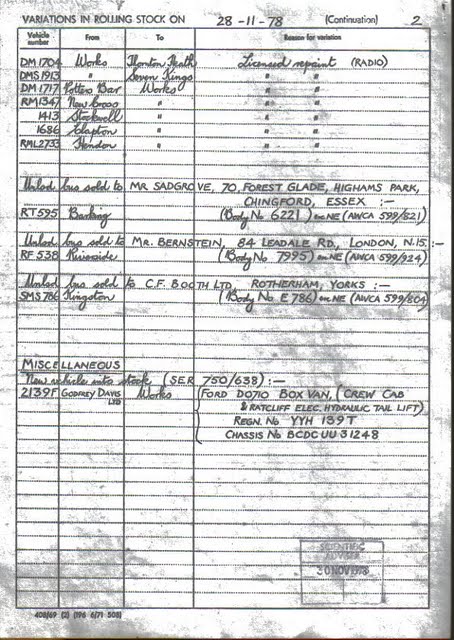 VARIATIONS IN ROLLING STOCK ON 28-11-78 (Continuation) 2
Vehicle number From To Reason for variation
DM 1704 Works Thornton Heath Licensed repaint (RADIO)
DMS 1913 " Seven Kings " "
DM 1717 Potters Bar Works " "
RM1347 New Cross " " "
1413 Stockwell " " "
1686 Clapton " " "
RML2733 Hendon " " "
Unlsd bus sold to MR SADGROVE, 70, FOREST GLADE, HIGHAMS PARK,
CHINGFORD, ESSEX :—
RT595 Barking (Body No 6221) on NE (AWCA 599/821)
Unlsd bus sold to MR. BERNSTEIN, 84 LEADALE RD., LONDON, N.15. :—
RF 538 Riverside (Body No 7995) on NE (AWCA 599/924)
Unlsd bus sold to C.F. BOOTH LTD, ROTHERHAM, YORKS :—
SMS 786 Kingston (Body No E 786) on NE (AWCA 599/804)
MISCELLANEOUS
New vehicle into stock (SER 750/638) :—
2139F GODFREY DAVIS LTD Works FORD D0710 BOX VAN, (CREW CAB
& RATCLIFF ELEC. HYDRAULIC TAIL LIFT)
REGN. No YYH 139T
CHASSIS No BCDCUU 31248
SCIENTIFIC
ADVISER
30 NOV 1978
408/69 (2) (196 6/71 508)